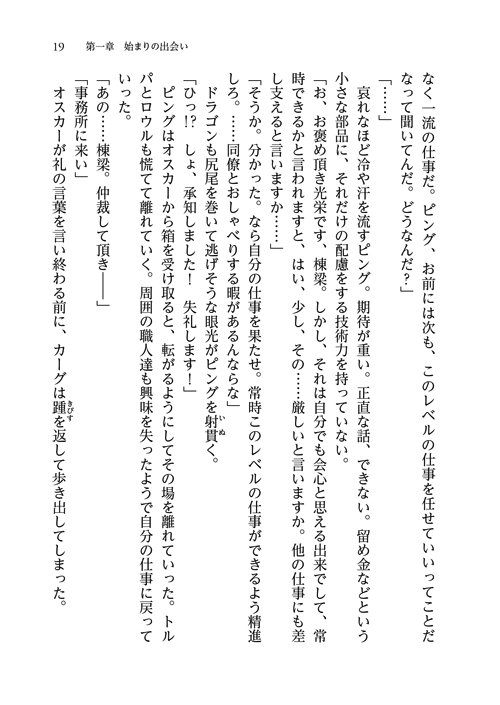 19　第一章　始まりの出会い
なく一流の仕事だ。ピング、お前には次も、このレベルの仕事を任せていいってことだ
なって聞いてんだ。どうなんだ？」
「……」
　哀れなほど冷や汗を流すピング。期待が重い。正直な話、できない。留め金などという
小さな部品に、それだけの配慮をする技術力を持っていない。
「お、お褒め頂き光栄です、棟梁。しかし、それは自分でも会心と思える出来でして、常
時できるかと言われますと、はい、少し、その……厳しいと言いますか。他の仕事にも差
し支えると言いますか……」
「そうか。分かった。なら自分の仕事を果たせ。常時このレベルの仕事ができるよう精進
しろ。……同僚とおしゃべりする暇があるんならな」
　ドラゴンも尻尾を巻いて逃げそうな眼光がピングを射貫く。
いぬ
「ひっ!?　しょ、承知しました！　失礼します！」
　ピングはオスカーから箱を受け取ると、転がるようにしてその場を離れていった。トル
パとロウルも慌てて離れていく。周囲の職人達も興味を失ったようで自分の仕事に戻って
いった。
「あの……棟梁。仲裁して頂き――」
「事務所に来い」
　オスカーが礼の言葉を言い終わる前に、カーグは踵を返して歩き出してしまった。
きびす